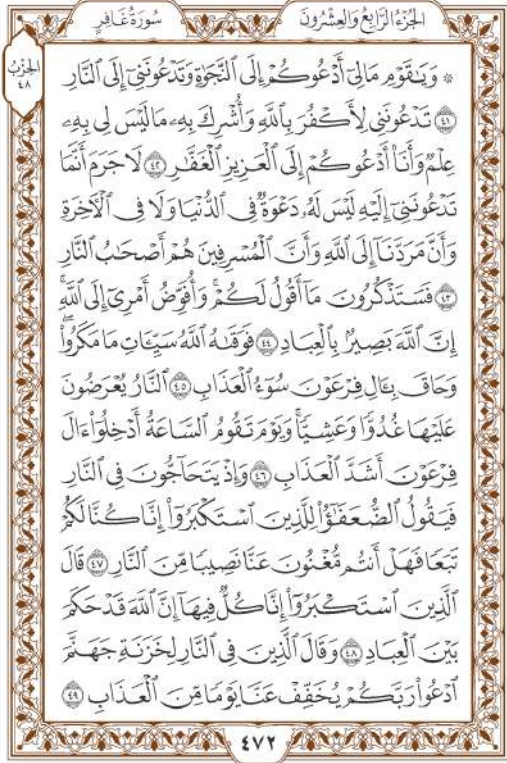 الجُزْءُ الرَّابِعُ وَالعِشْرُونَ
سُورَةُ غَافِرٍ
الحِزْبُ
٤٨
۞ وَيَٰقَوْمِ مَا لِيٓ أَدْعُوكُمْ إِلَى ٱلنَّجَوٰةِ وَتَدْعُونَنِيٓ إِلَى ٱلنَّارِ
٤١ تَدْعُونَنِي لِأَكْفُرَ بِٱللَّهِ وَأُشْرِكَ بِهِۦ مَا لَيْسَ لِي بِهِۦ
عِلْمٌ وَأَنَا۠ أَدْعُوكُمْ إِلَى ٱلْعَزِيزِ ٱلْغَفَّٰرِ ٤٢ لَا جَرَمَ أَنَّمَا
تَدْعُونَنِيٓ إِلَيْهِ لَيْسَ لَهُۥ دَعْوَةٌ فِي ٱلدُّنْيَا وَلَا فِي ٱلْأٓخِرَةِ
وَأَنَّ مَرَدَّنَآ إِلَى ٱللَّهِ وَأَنَّ ٱلْمُسْرِفِينَ هُمْ أَصْحَٰبُ ٱلنَّارِ
٤٣ فَسَتَذْكُرُونَ مَآ أَقُولُ لَكُمْ ۚ وَأُفَوِّضُ أَمْرِيٓ إِلَى ٱللَّهِ ۚ
إِنَّ ٱللَّهَ بَصِيرٌۢ بِٱلْعِبَادِ ٤٤ فَوَقَىٰهُ ٱللَّهُ سَيِّـَٔاتِ مَا مَكَرُوا۟ ۖ
وَحَاقَ بِـَٔالِ فِرْعَوْنَ سُوٓءُ ٱلْعَذَابِ ٤٥ ٱلنَّارُ يُعْرَضُونَ
عَلَيْهَا غُدُوًّا وَعَشِيًّا ۖ وَيَوْمَ تَقُومُ ٱلسَّاعَةُ أَدْخِلُوٓا۟ ءَالَ
فِرْعَوْنَ أَشَدَّ ٱلْعَذَابِ ٤٦ وَإِذْ يَتَحَآجُّونَ فِي ٱلنَّارِ
فَيَقُولُ ٱلضُّعَفَٰٓؤُا۟ لِلَّذِينَ ٱسْتَكْبَرُوٓا۟ إِنَّا كُنَّا لَكُمْ
تَبَعًا فَهَلْ أَنتُم مُّغْنُونَ عَنَّا نَصِيبًا مِّنَ ٱلنَّارِ ٤٧ قَالَ
ٱلَّذِينَ ٱسْتَكْبَرُوٓا۟ إِنَّا كُلٌّ فِيهَآ إِنَّ ٱللَّهَ قَدْ حَكَمَ
بَيْنَ ٱلْعِبَادِ ٤٨ وَقَالَ ٱلَّذِينَ فِي ٱلنَّارِ لِخَزَنَةِ جَهَنَّمَ
ٱدْعُوا۟ رَبَّكُمْ يُخَفِّفْ عَنَّا يَوْمًا مِّنَ ٱلْعَذَابِ ٤٩
٤٧٢